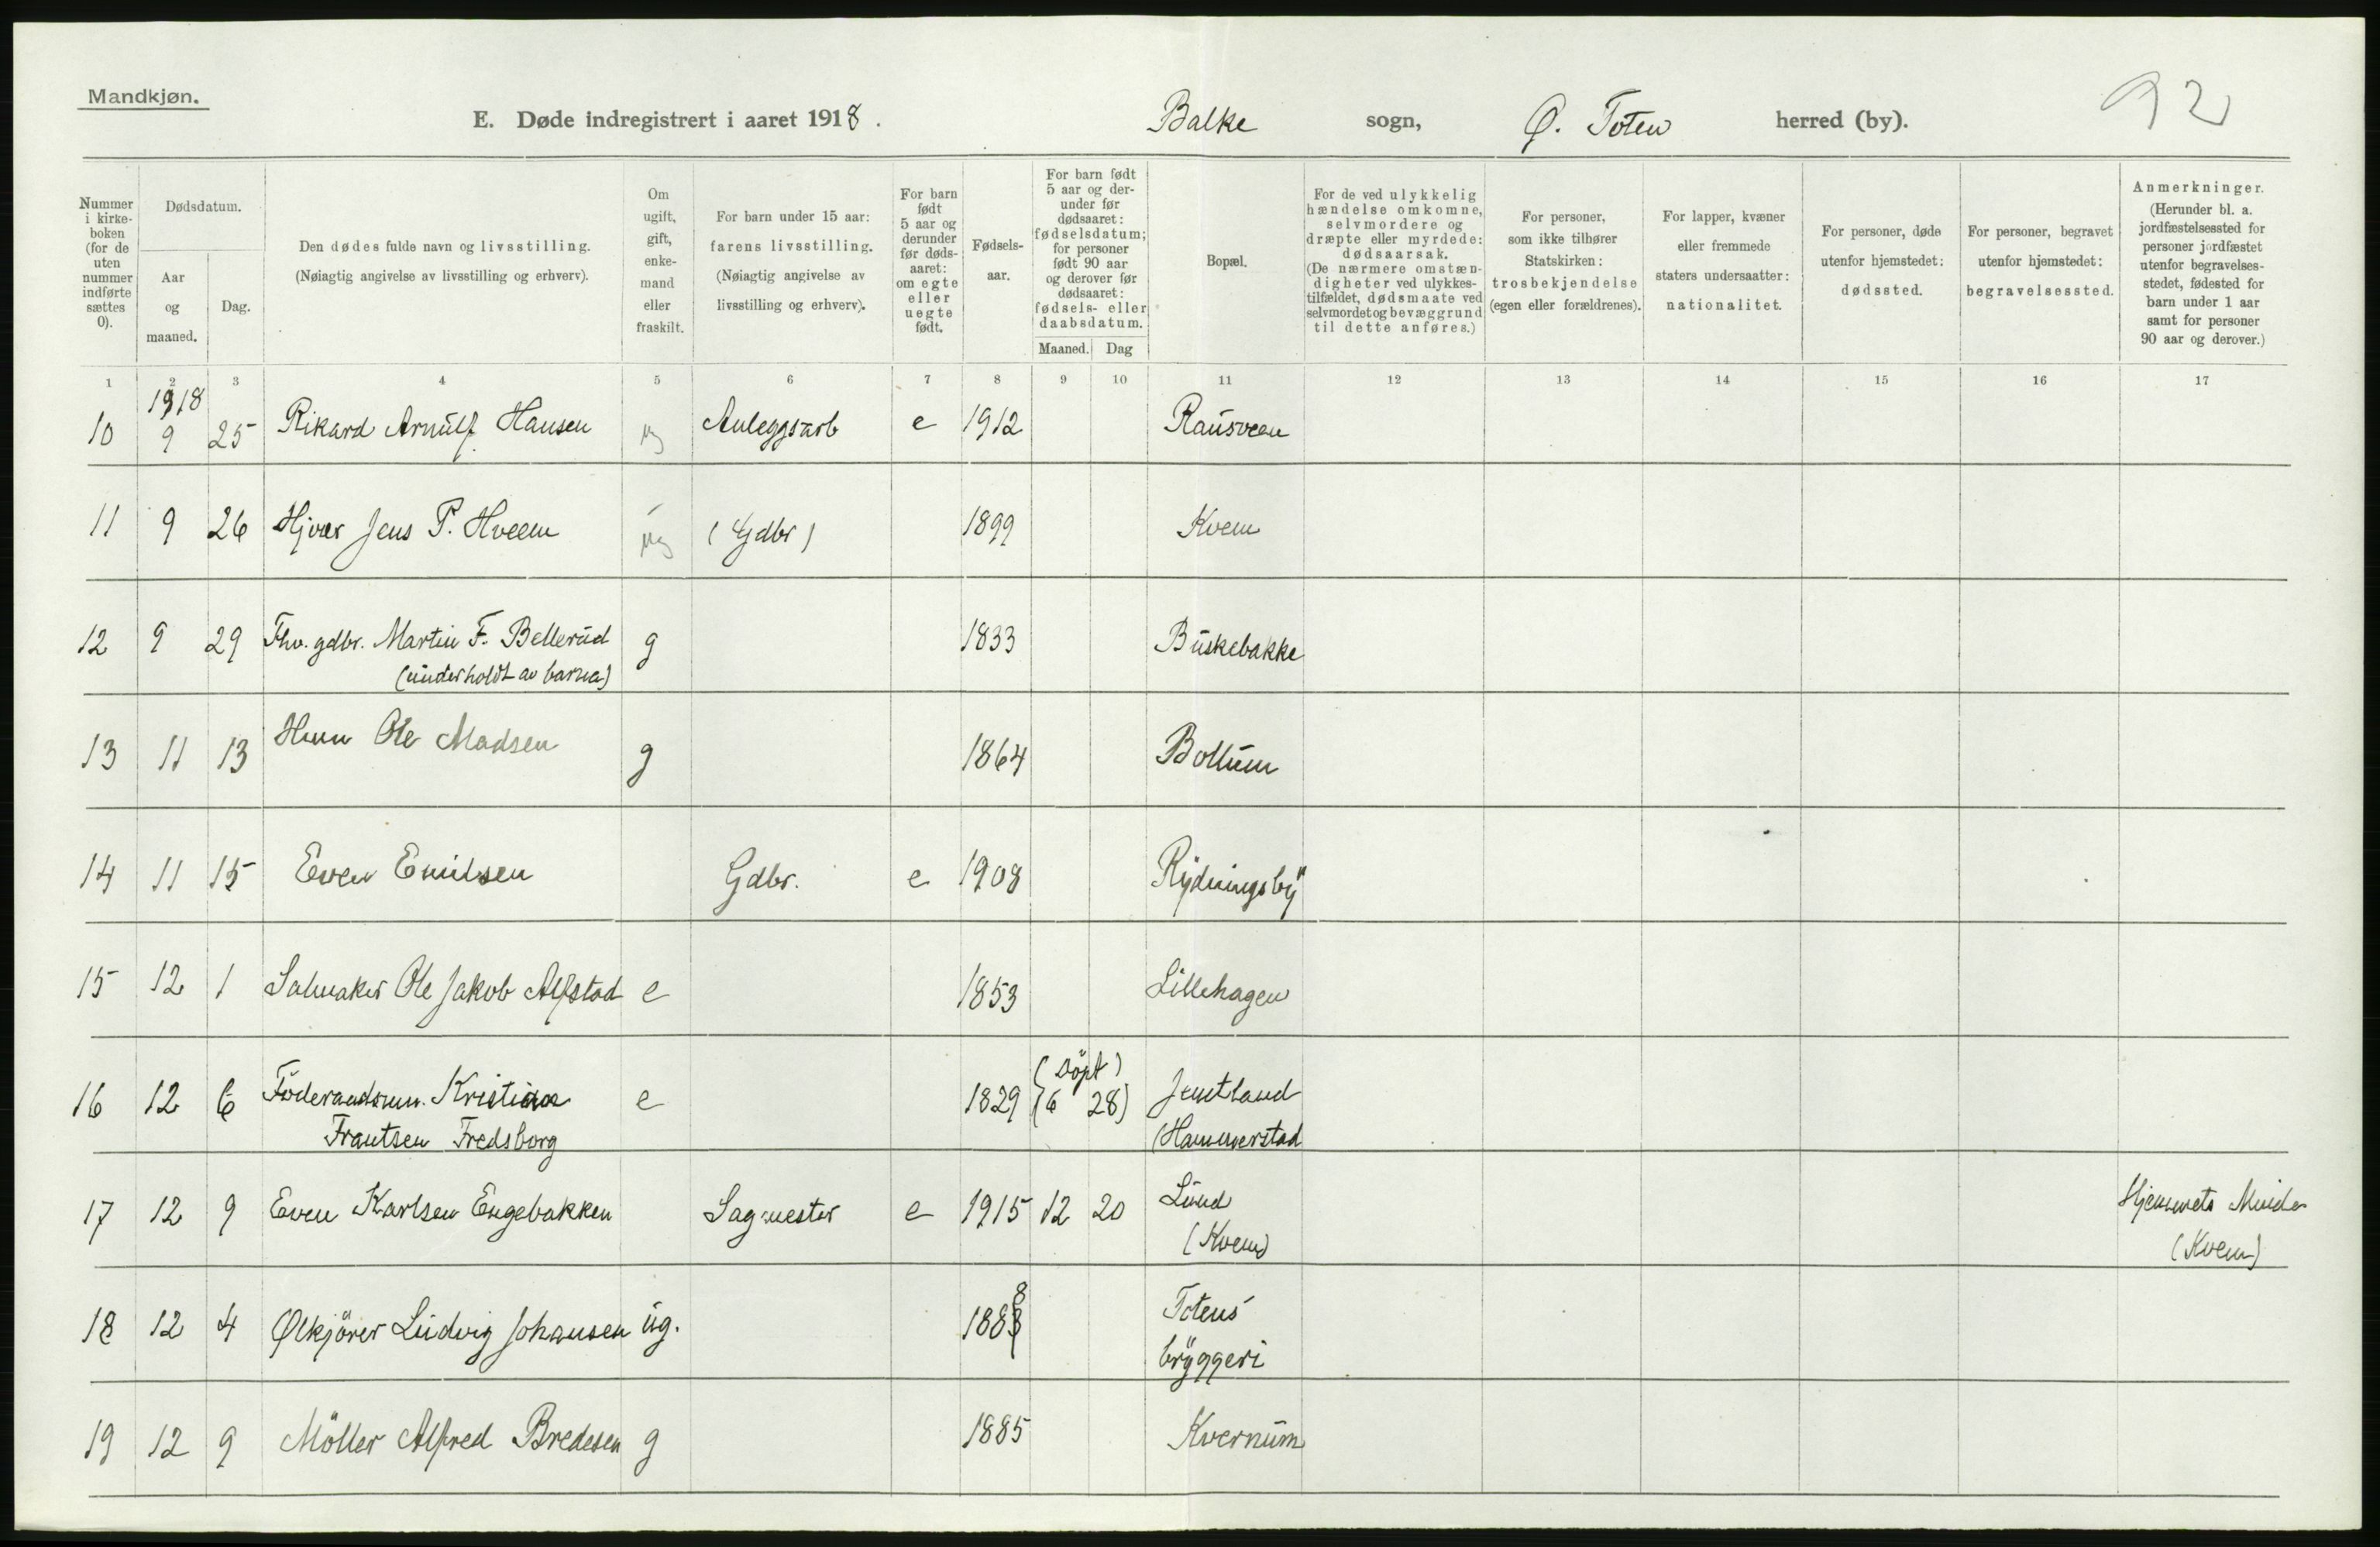 Mandkjøn.
E. Døde indregistrert i aaret 1918. Balke sogn, Ø. Toten herred (by).
92
Nummer i kirkeboken (for de uten nummer indførte sættes 0).
Dødsdatum.
Aar og maaned.
Dag.
Den dødes fulde navn og livsstilling.
(Nøiagtig angivelse av livsstilling og erhverv).
Om ugift, gift, enkemand eller fraskilt.
For barn under 15 aar: farens livsstilling.
(Nøiagtig angivelse av livsstilling og erhverv).
For barn født 5 aar og derunder før dødsaaret: om egte eller uegte født.
Fødselsaar.
For barn født 5 aar og derunder før dødsaaret: fødselsdatum; for personer født 90 aar og derover før dødsaaret: fødsels- eller daabsdatum.
Maaned. Dag
Bopæl.
For de ved ulykkelig hændelse omkomne, selvmordere og dræpte eller myrdede: dødsaarsak.
(De nærmere omstændigheter ved ulykkestilfældet, dødsmaate ved selvmordet og bevæggrund til dette anføres.)
For personer, som ikke tilhører Statskirken: trosbekjendelse (egen eller forældrenes).
For lapper, kvæner eller fremmede staters undersaatter: nationalitet.
For personer, døde utenfor hjemstedet: dødssted.
For personer, begravet utenfor hjemstedet: begravelsessted.
Anmerkninger.
(Herunder bl. a. jordfæstelsessted for personer jordfæstet utenfor begravelsesstedet, fødested for barn under 1 aar samt for personer 90 aar og derover.)
1 2 3 4 5 6 7 8 9 10 11 12 13 14 15 16 17
1918
10 9 25 Rikard Arnulf Hansen ug Anleggsarb e 1912 Rausveen
11 9 26 Jens P. Hveem ug (Gdbr) 1899 Kvem
12 9 29 Fhv. gdbr. Martin F. Bellerud g 1833 Buskebakke
(underholdt av barna)
13 11 13 Ole Madsen g 1864 Bollum
14 11 15 Even Emilsen Gdbr. e 1908 Rydningsby
15 12 1 Salmaker Ole Jakob Alfstad e 1853 Lillehagen
16 12 6 Föderaadsmn. Kristian e 1829 (Döpt) (6 28) Jemtland
Frantsen Fredsborg (Hammerstad
17 12 9 Even Karlsen Engebakken Sagmester e 1915 12 20 Lund Hjemmets Minde
(Kvem) (Kvem)
18 12 4 Ølkjörer Ludvig Johansen ug. 1888 Totens
bryggeri
19 12 9 Möller Alfred Bredesen g 1885 Kvernum